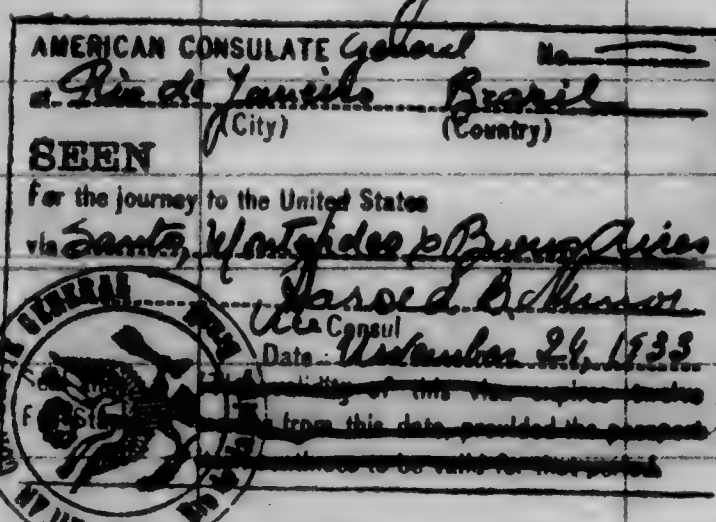 AMERICAN CONSULATE General No.
at Rio de Janeiro Brazil
(City) (Country)
SEEN
For the journey to the United States
via Santos, Montevideo & Buenos Aires
Harold B. Minor
Vice Consul
Date: November 24, 1933
validity of this visa expires twelve
from this date, provided the passport
continues to be valid for that period
GENERAL